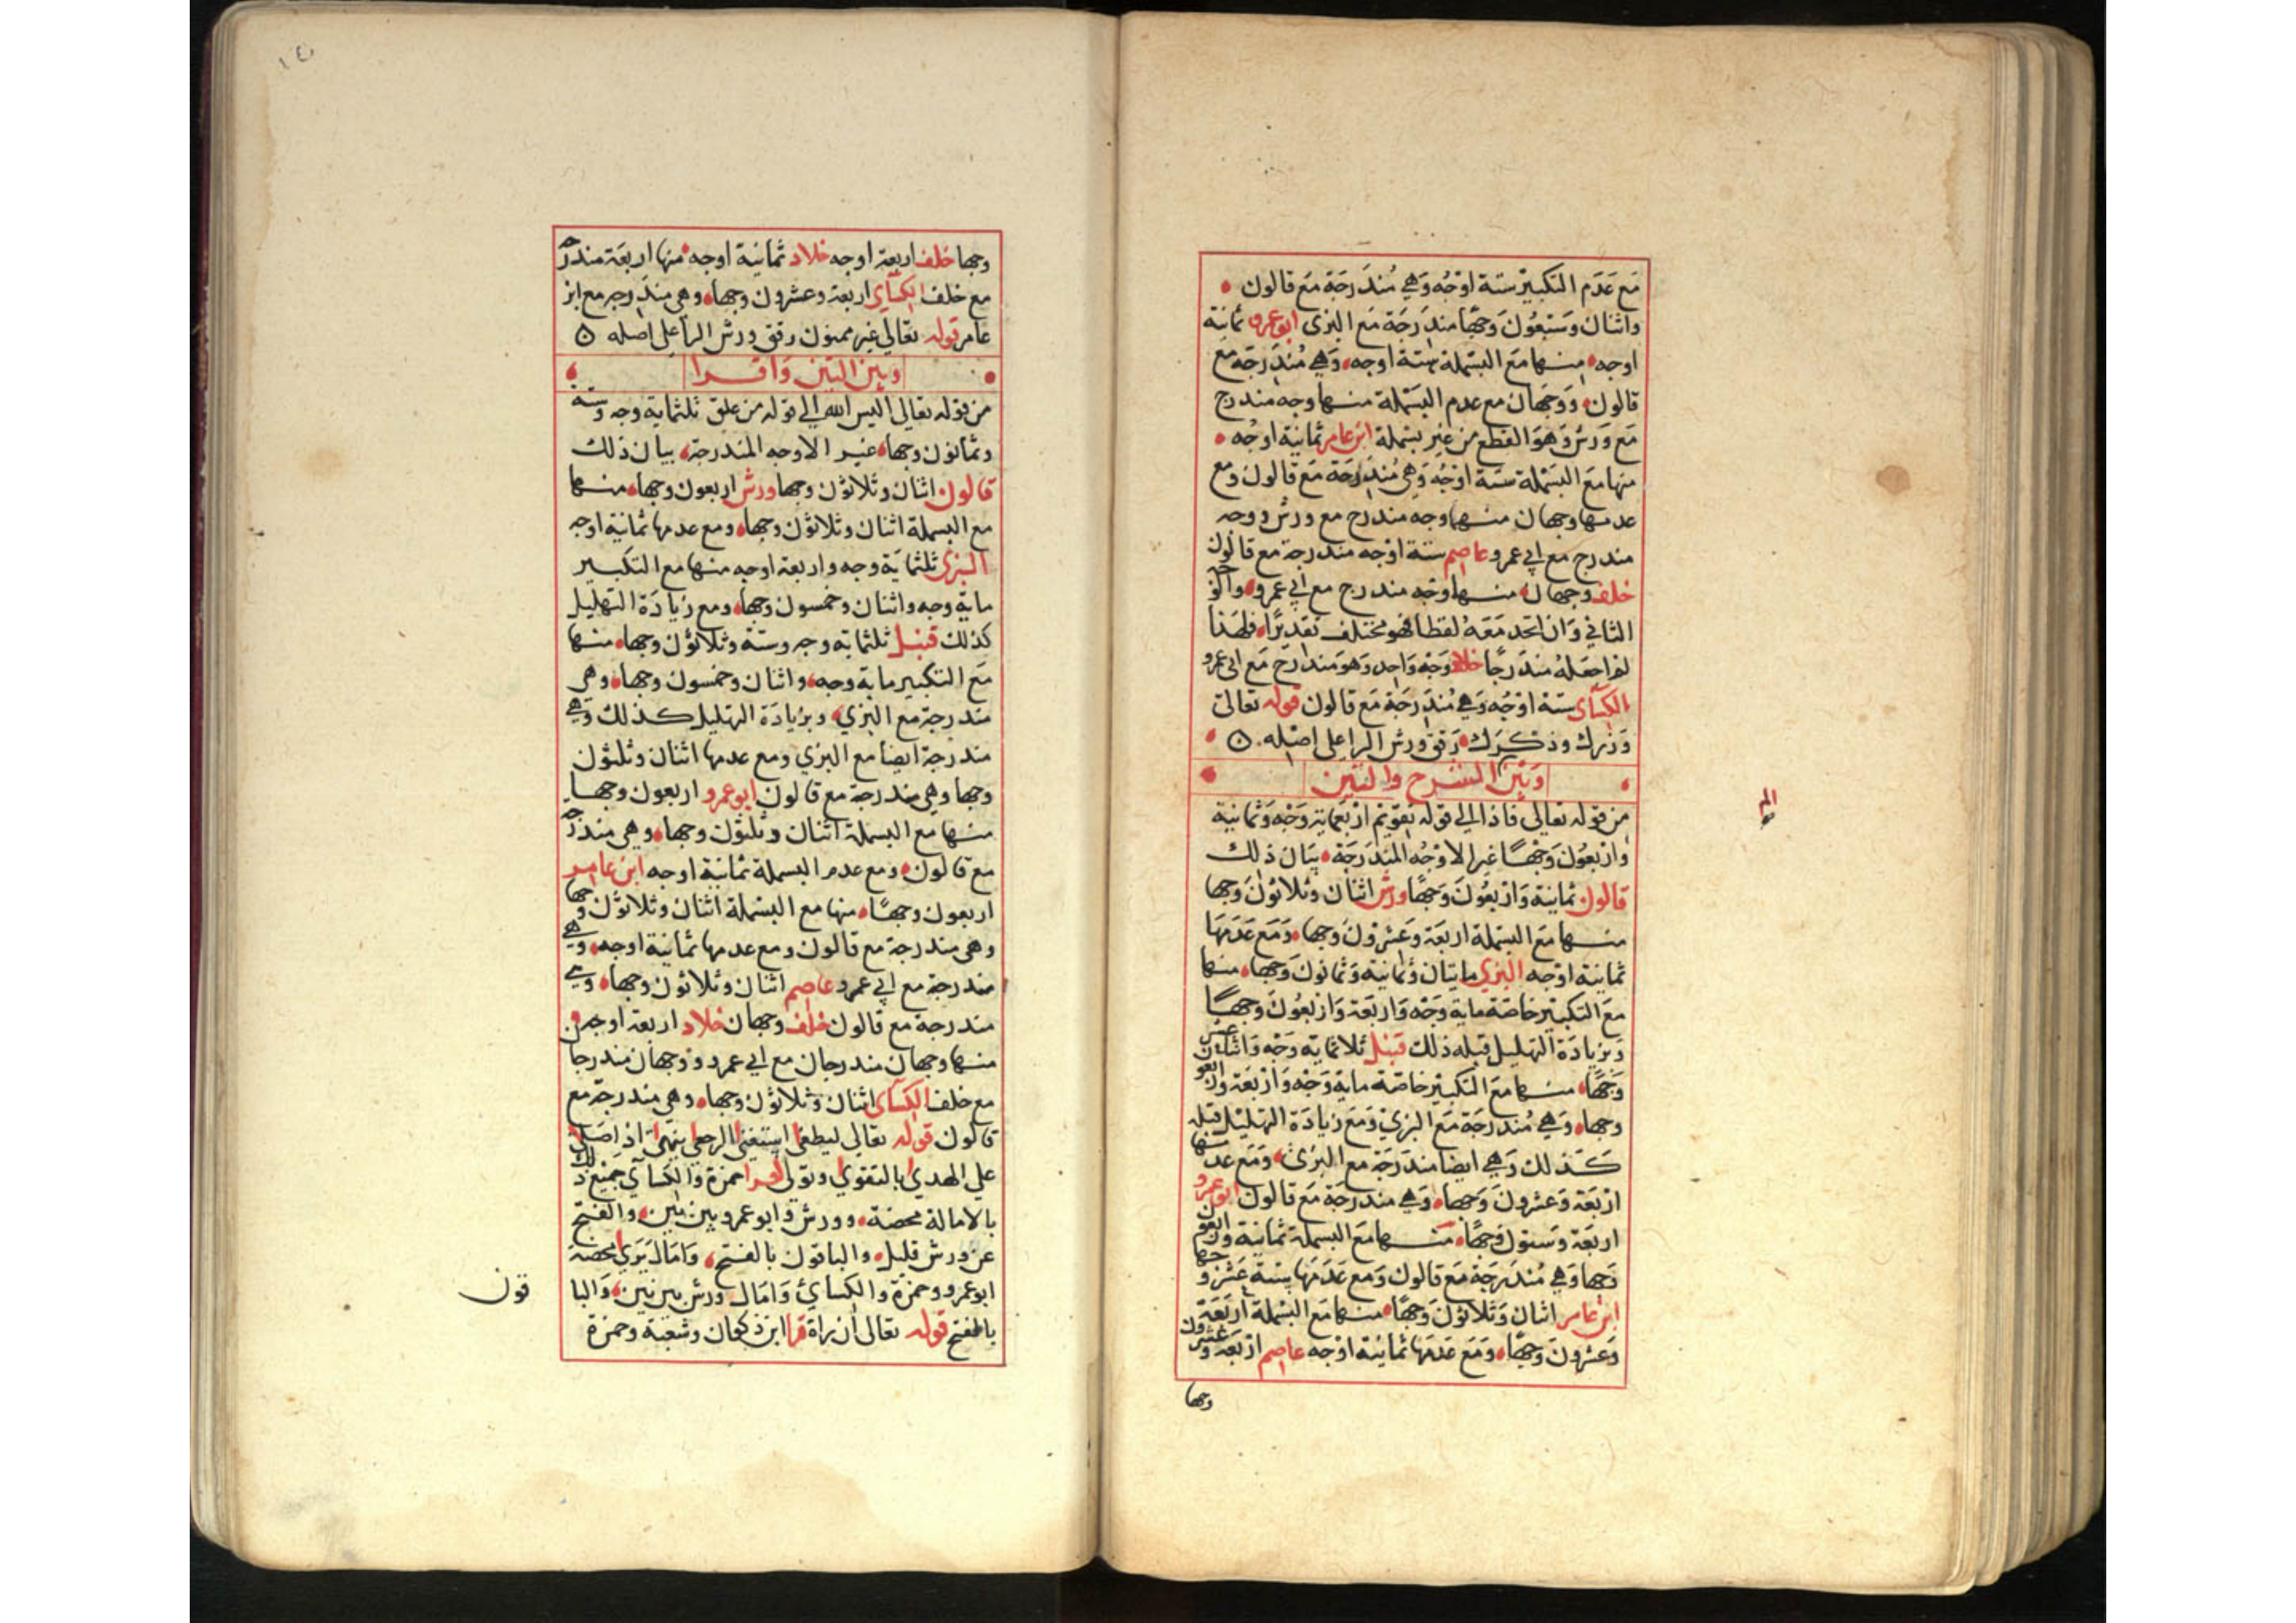 مع عدم التكبير ستة اوجه وهي مندرجة مع قالون
واثنان وسبعون وجها مندرجة مع البزي ابو عمرو ثمانية
اوجه منها مع البسملة ستة اوجه وهي مندرجة مع
قالون ووجهان مع عدم البسملة منها وجه مندرج
مع ورش وهو القطع من غير بسملة ابن عامر ثمانية اوجه
منها مع البسملة ستة اوجه وهي مندرجة مع قالون ومع
عدمها وجهان منهما وجه مندرج مع ورش ووجه
مندرج مع ابي عمرو عاصم ستة اوجه مندرجة مع قالون
خلف وجهان منهما وجه مندرج مع ابي عمرو والوجه
الثاني وان اتحد معه لفظا فهو مختلف تقديرا فلهذا
لم اجعله مندرجا خلاد وجه واحد وهو مندرج مع ابي عمرو
الكسآي ستة اوجه وهي مندرجة مع قالون قوله تعالى
وزرك وذكرك رقق ورش الرا على اصله
وبين الم نشرح والتين
الم
من قوله تعالى فاذا الى قوله تقويم اربعماية وجه وثمانية
واربعون وجها غير الاوجه المندرجة بيان ذلك
قالون ثمانية واربعون وجها ورش اثنان وثلاثون وجها
منها مع البسملة اربعة وعشرون وجها ومع عدمها
ثمانية اوجه البزي مايتان وثمانية وثمانون وجها منها
مع التكبير خاصة ماية وجه واربعة واربعون وجها
وبزيادة التهليل قبله ذلك قنبل ثلاثماية وجه واثنا عشر
وجها منها مع التكبير خاصة ماية وجه واربعة واربعون
وجها وهي مندرجة مع البزي ومع زيادة التهليل قبله
كذلك وهي ايضا مندرجة مع البزي ومع عدمها
اربعة وعشرون وجها وهي مندرجة مع قالون ابو عمرو
اربعة وستون وجها منها مع البسملة ثمانية واربعون
وجها وهي مندرجة مع قالون ومع عدمها ستة عشر وجها
ابن عامر اثنان وثلاثون وجها منها مع البسملة اربعة
وعشرون وجها ومع عدمها ثمانية اوجه عاصم اربعة وعشرون
وجها
وجها خلف اربعة اوجه خلاد ثمانية اوجه منها اربعة مندرجة
مع خلف الكسآي اربعة وعشرون وجها وهي مندرجة مع ابن
عامر قوله تعالي غير ممنون رقق ورش الرا على اصله
وبين التين واقرا
من قوله تعالى اليس الله الي قوله من علق ثلثماية وجه وستة
وثمانون وجها غير الاوجه المندرجة بيان ذلك
قالون اثنان وثلاثون وجها ورش اربعون وجها منها
مع البسملة اثنان وثلاثون وجها ومع عدمها ثمانية اوجه
البزي ثلثماية وجه واربعة اوجه منها مع التكبير
ماية وجه واثنان وخمسون وجها ومع زيادة التهليل
كذلك قنبل ثلثماية وجه وستة وثلاثون وجها منها
مع التكبير ماية وجه واثنان وخمسون وجها وهي
مندرجة مع البزي وبزيادة التهليل كذلك وهي
مندرجة ايضا مع البزي ومع عدمها اثنان وثلثون
وجها وهي مندرجة مع قالون ابو عمرو اربعون وجها
منها مع البسملة اثنان وثلثون وجها وهي مندرجة
مع قالون ومع عدم البسملة ثمانية اوجه ابن عامر
اربعون وجها منها مع البسملة اثنان وثلاثون وجها
وهي مندرجة مع قالون ومع عدمها ثمانية اوجه وهي
مندرجة مع ابي عمرو عاصم اثنان وثلاثون وجها وهي
مندرجة مع قالون خلف وجهان خلاد اربعة اوجه
منها وجهان مندرجان مع ابي عمرو ووجهان مندرجا
مع خلف الكسآي اثنان وثلاثون وجها وهي مندرجة مع
قالون قوله تعالى ليطغى استغنى الرجعى ينهى اذا صلى
على الهدي بالتقوي وتولي حمزة والكسآي جميع ذلك
بالامالة محضة وورش وابو عمرو بين بين والفتح
عن ورش قليل والباقون بالفتح وامال يري محضة
ابو عمرو وحمزة والكسائ وامال ورش بين بين والبا
قون
بالفتح قوله تعالى ان راه قرا ابن ذكوان وشعبة وحمزة